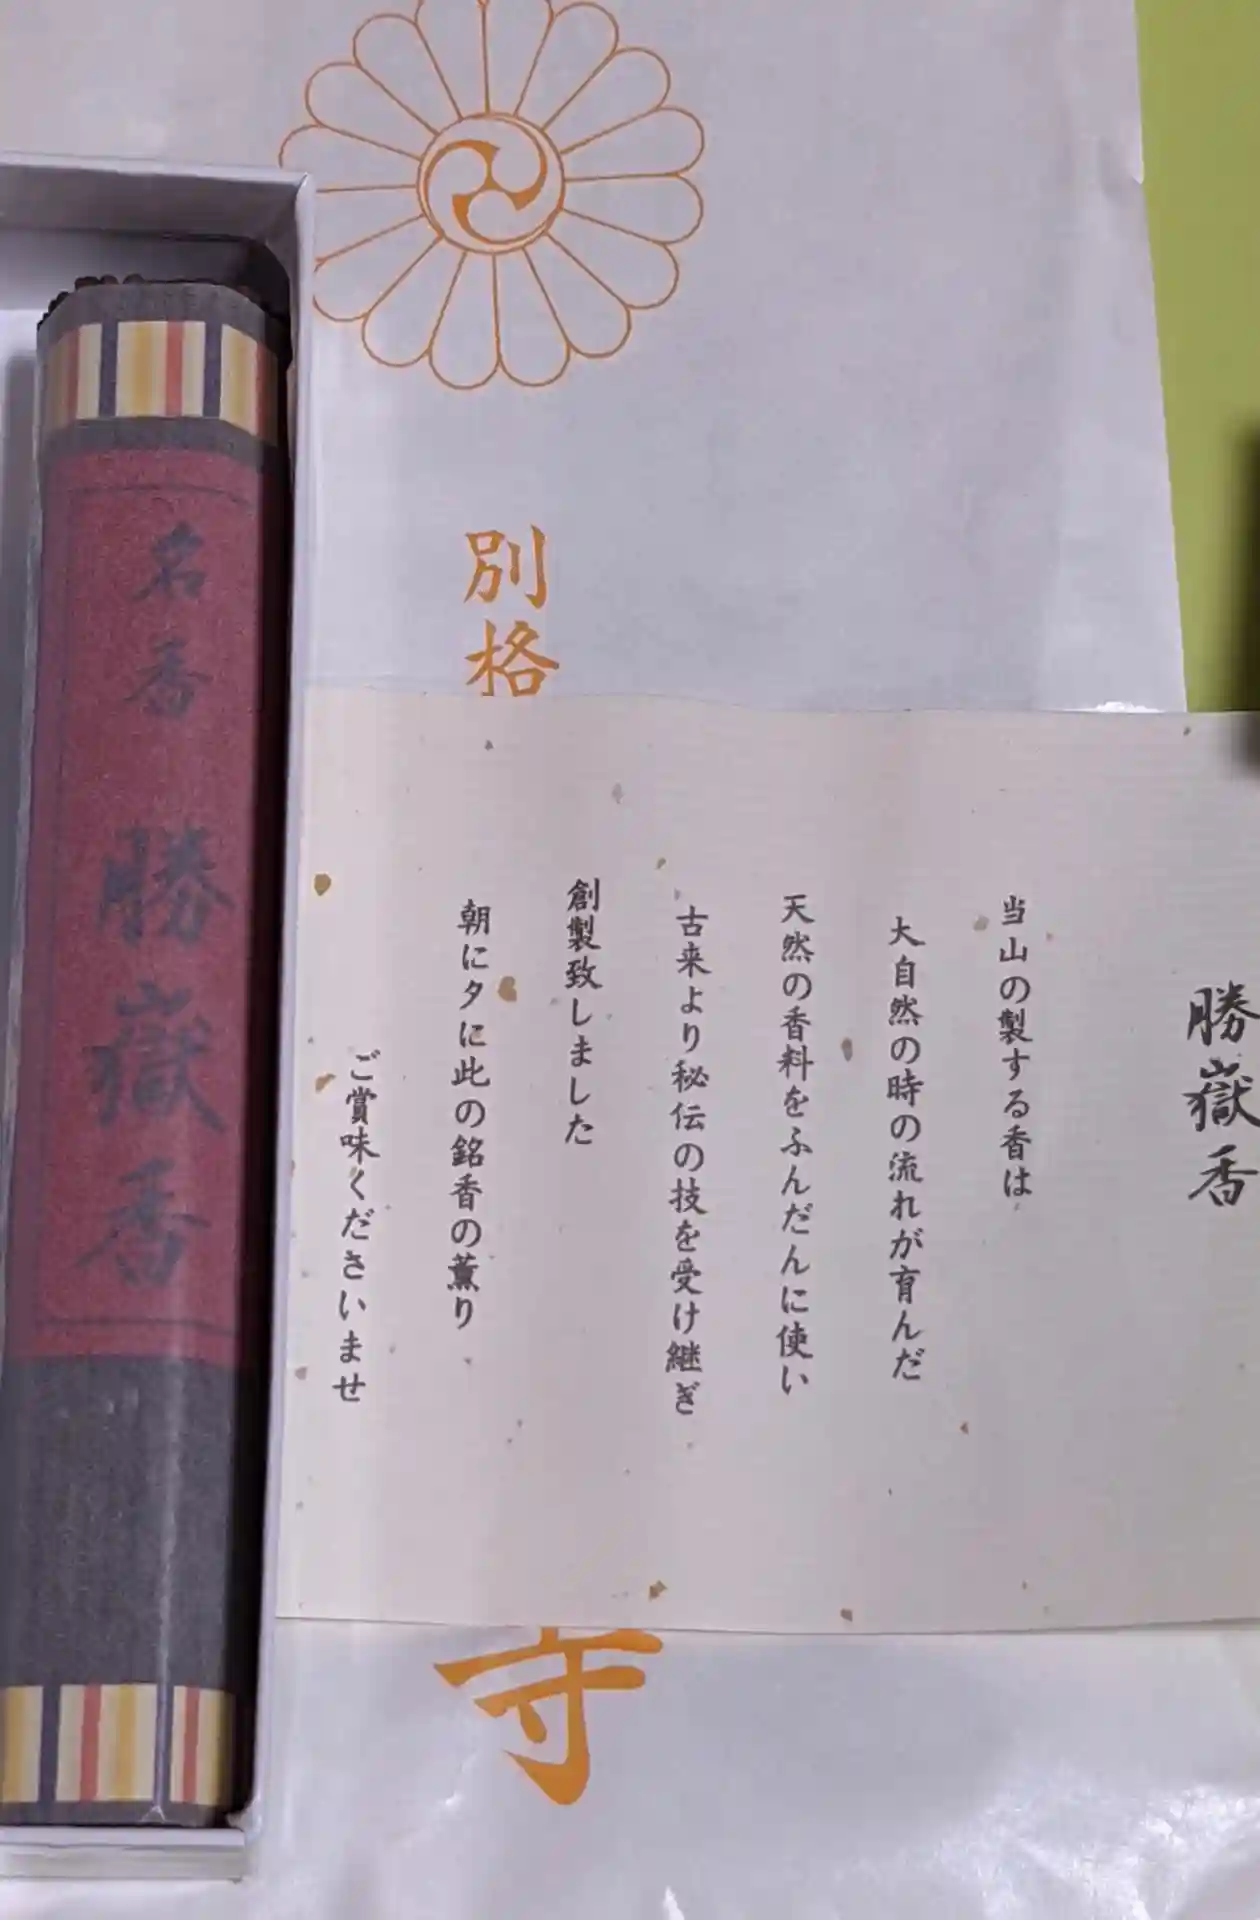 名香 勝嶽香
別格
寺
勝嶽香
当山の製する香は
大自然の時の流れが育んだ
天然の香料をふんだんに使い
古来より秘伝の技を受け継ぎ
創製致しました
朝に夕に此の銘香の薫り
ご賞味くださいませ